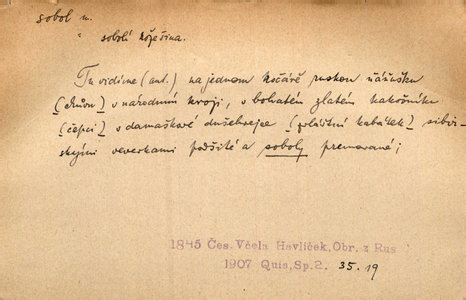 sobol m.
" sobolí kožešina.
Tu vidíme (ant.) na jednom kočáře ruskou ňáňušku
(chůvu) v národním kroji, v bohatém zlatém kakošníku
(čepci) v damaškové dušehrejce (zvláštní kabátek) sibiř-
skými veverkami podšité a soboly premované;
1845 Čes. Včela Havlíček, Obr. z Rus
1907 Quis, Sp.2. 35.19